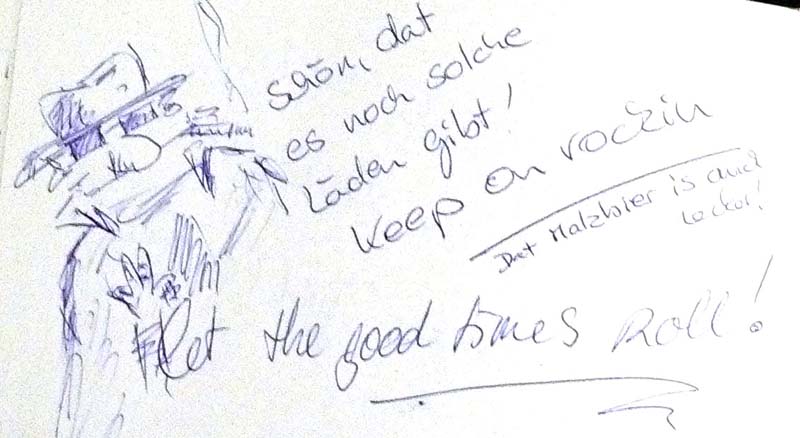 schön, dat
es noch solche
Läden gibt!
Keep on rockin
Dat Malzbier is auch
Lecker!
Let the good times Roll!